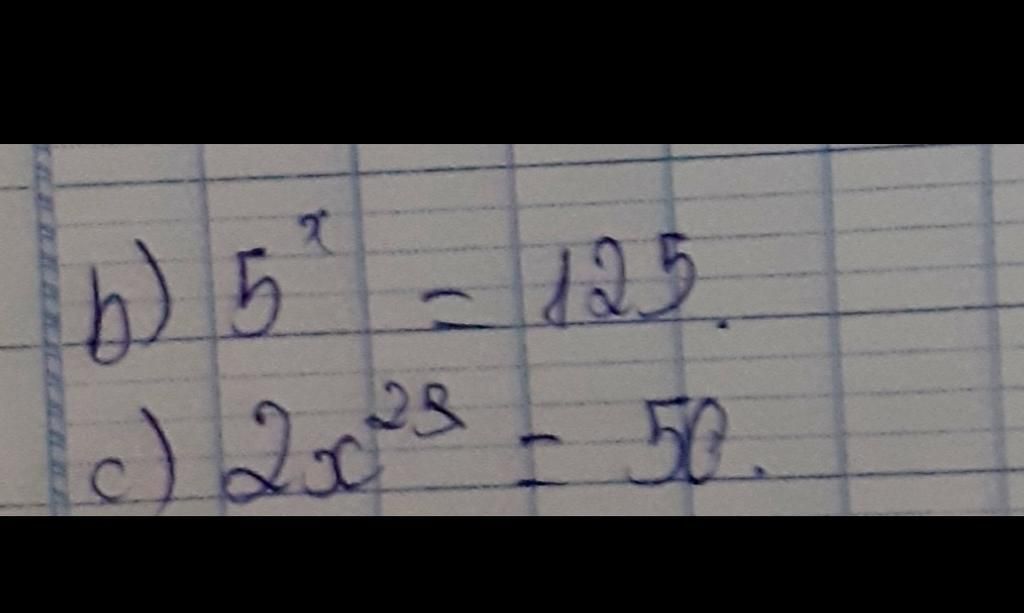 b) 5ˣ = 125.
c) 2x²⁸ = 50.